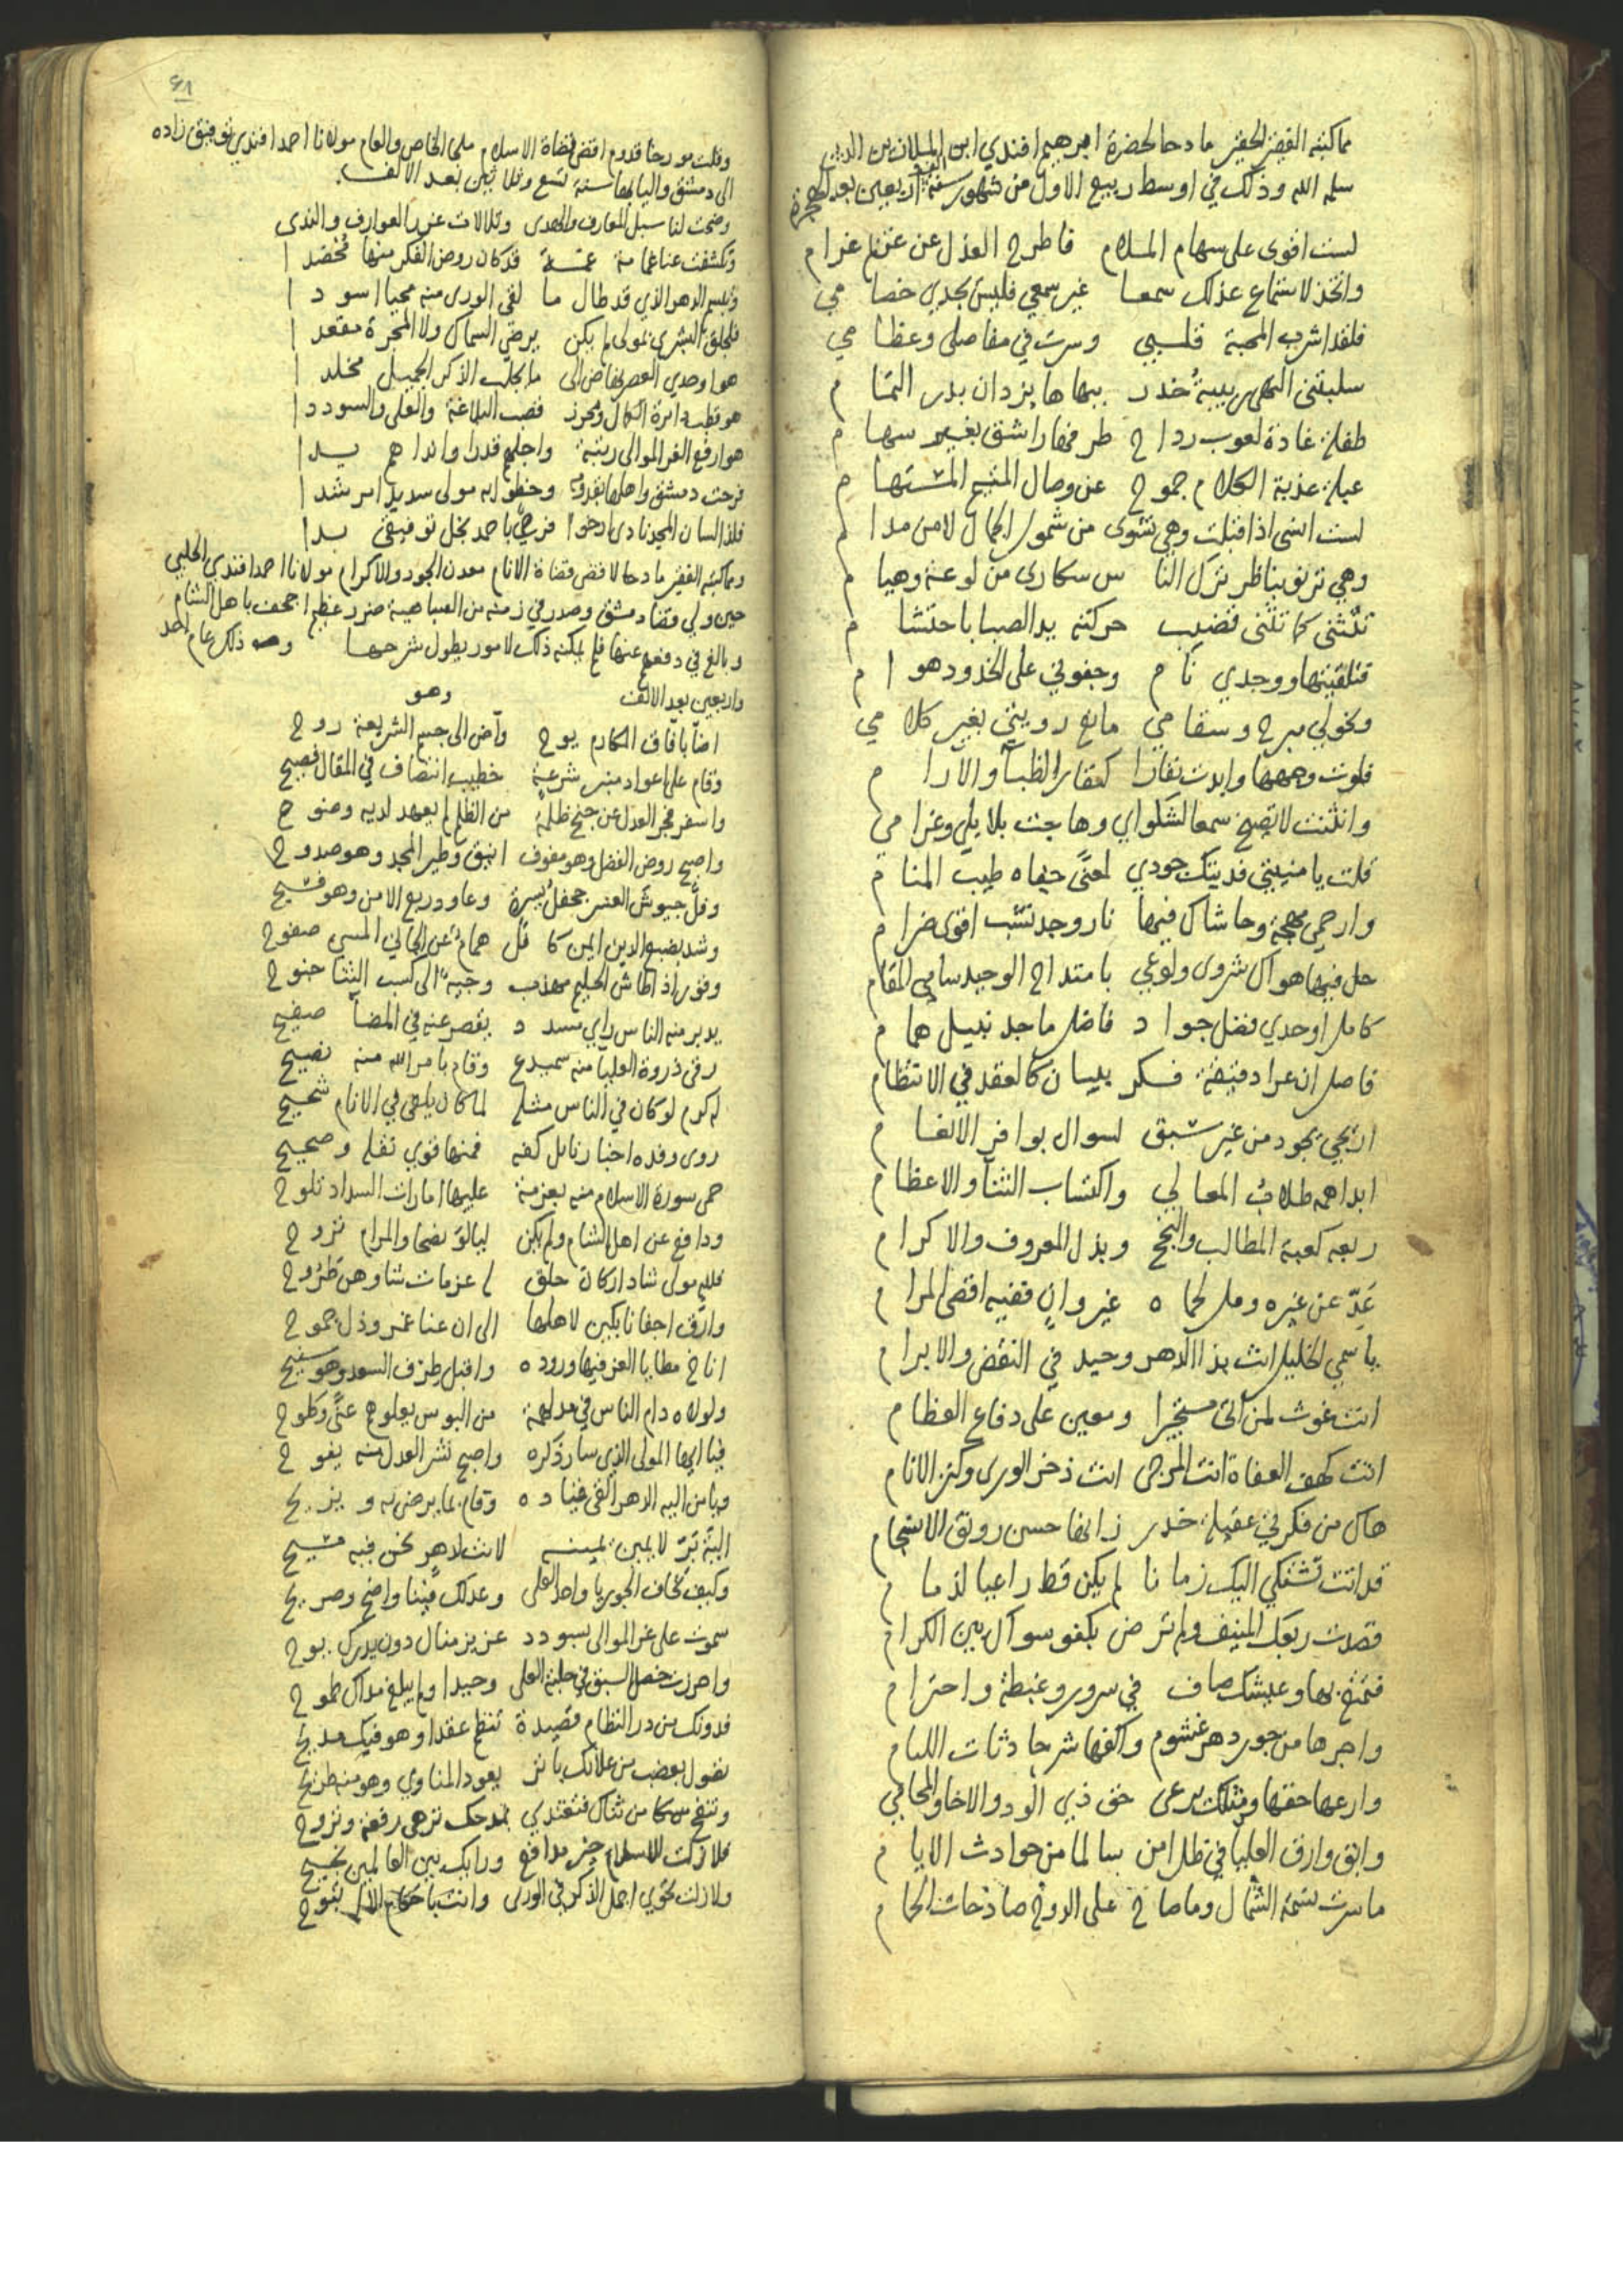 مما كتبه الفقير الحقير مادحا لحضرة ابرهيم افندي ابن
سلمه الله وذلك في اوسط ربيع الاول من شهور سنة اربعين بعد الهجرة
لست اقوى على سهام الملام فاطرح العذل عن غرام
واتخذ لاستماع عذلك سمعا غير سمعي فليس يجدي خصامي
فلقد اشرب المحبة قلبي وسرت في مفاصلي وعظامي
سلبتني النهى ربيبة خدر ببهاها يزدان بدر التمام
طفلة غادة لعوب رداح طرفها راشق بغير سهام
عبلة عذبة الكلام جموح عن وصال المتيم المستهام
لست انسى اذ اقبلت وهي نشوى من شمول الجمال لا من مدام
وهي ترنو بناظر ترك الناس سكارى من لوعة وهيام
تتثنى كما تثنى قضيب حركته يد الصبا باحتشام
فتلقيتها ووجدي نام وجفوني على الخدود هوام
ونحولي مبرح وسقامي مانع رويتي بغير كلامي
فلوت وجهها وابدت نفارا كنفار الظبآ والآرام
وانثنت لا تصيخ سمعا لشكواي وهاجت بلابلي وغرامي
قلت يا منيتي فديتك جودي لمعنى جفاه طيب المنام
وارحمي مهجة وحاشاك فيها نار وجد تشب اقوى ضرام
حل فيها هواك شروى ولوعي بامتداح الوحيد سامي المقام
كامل اوحدي فضل جواد فاضل ماجد نبيل همام
فاصل ان عرا دقيقة فكر ببيان كالعقد في الانتظام
اريحي يجود من غير سبق لسوال بوافر الانعام
ابدا همه طلاب المعالي واكتساب الثنآ والاعظام
ربعه كعبة المطالب والنجح وبذل المعروف والاكرام
عد عن غيره ومل لحماه غير وان ففيه اقصى المرام
يا سمي الخليل انت بذا الدهر وحيد في النقض والابرام
انت غوث لمن اتى مستجيرا ومعين على دفاع العظام
انت كهف العفاة انت المرجى انت ذخر الورى وكنز الانام
هاك من فكرتي عقيلة خدر زانها حسن رونق الانسجام
قد اتت تشتكي اليك زمانا لم يكن قط راعيا لذمام
قصدت ربعك المنيف ولم ترض بكفو سواك بين الكرام
فتمتع بها وعيشك صاف في سرور وغبطة واحترام
واجرها من جور دهر غشوم واكفها شر حادثات الليام
وارعها حقها ومثلك يرعى حق ذي الود والاخا والمحامي
وابق وارق العليا في ظل امن سالما من حوادث الايام
ما سرت نسمة الشمال وما صاح على الدوح صادحات الحمام
٤٨
وقلت مورخا قدوم اقضى قضاة الاسلام ملجا الخاص والعام مولانا احمد افندي توفيق زاده
الى دمشق واليا بها سنة تسع وثلاثين بعد الالف
وضحت لنا سبل المعارف والهدى وتلالات غرر العوارف والندى
وتكشفت عنا غمامة غمة قد كان روض الفكر منها مخضدا
وتبسم الدهر الذي قد طال ما لقي الورى منه محيا اسودا
فلجلق البشرى بمولى لم يكن يرضى السماك ولا المجرة مقعدا
هو اوحدي العصر نهاض الى ما يجلب الذكر الجميل مخلدا
هو قطب دايرة الكمال ومحرز قصب البلاغة والعلى والسوددا
هو ارفع الغر الموالي رتبة واجلهم قدرا واندا هم يدا
فرحت دمشق واهلها بقدومه وحظوا به مولى سديدا مرشدا
فلذا لسان المجد نادى ارخوا فرحي باحمد نجل توفيق بدا
ومما كتبه الفقير مادحا لاقضى قضاة الانام معدن الجود والاكرام مولانا احمد افندي الحلبي
حين ولي قضا دمشق وصدر في زمنه من السباهية ضرر عظيم اجحف باهل الشام
وبالغ في دفعهم عنها فلم يمكنه ذلك لامور يطول شرحها وذلك عام احد
واربعين بعد الالف وهو
اضآ بآفاق المكارم يوح وآض الى جسم الشريعة روح
وقام على اعواد منبر شرعة خطيب انتصاف في المقال فصيح
واسفر فجر العدل عن جنح ظلمة من الظلم لم يعهد لديه وضوح
واصبح روض الفضل وهو مفوف انيق وطير المجد وهو صدوح
وفل جيوش العسر جحفل يسره وعاود ربع الامن وهو فسيح
وشد بضبع الدين ايمن كافل همام عن الجاني المسي صفوح
وقور اذا طاش الحليم مهذب وجيه الى كسب الثنا جنوح
يدبر منه الناس راي مسدد يقصر عنه في المضآ صفيح
رقى ذروة العليا منه سميدع وقام بامر الله منه نصيح
له كرم لو كان في الناس مثله لما كان يلقى في الانام شحيح
روى وفده اخبار نايل كفه فمنها قوي نقله وصحيح
حمى سورة الاسلام منه بعزمة عليها امارات السداد تلوح
ودافع عن اهل الشام ولم يكن ليالو نصحا والمرام نزوح
فلله مولى شاد اركان جلق له عزمات شاوهن طروح
وارقى اجفانا بكين لاهلها الى ان عنا غمر وذل جموح
اناخ مطايا العز فيها وروده واقبل طرف السعد وهو سنيح
ولولاه دام الناس في مدلهمة من البوس يعلوهم عنى وكلوح
فيا ايها المولى الذي سار ذكره واصبح نشر العدل منه يفوح
ويا من اليه الدهر القى قياده وقام بما يرضى به ويزيح
الية بر لا يمين يمينه لانت لدهر نحن فيه مسيح
وكيف نخاف الجور يا واحد العلى وعدلك فينا واضح وصريح
سموت على غر الموالي بسودد عزيز منال دون مدرك يوح
واحرزت خصل السبق في حلبة العلى وحيدا ولم يبلغ مداك طموح
فدونك من در النظام قصيدة تنظم عقدا وهو فيك مديح
يعود المناوي وهو منه طريح
بمدحك تزهى رفعة وتروح
فلا زلت للاسلام خير مدافع ورايك بين العالمين نجيح
ولا زلت تحوي اجمل الذكر في الورى وانت باحكام تبوح